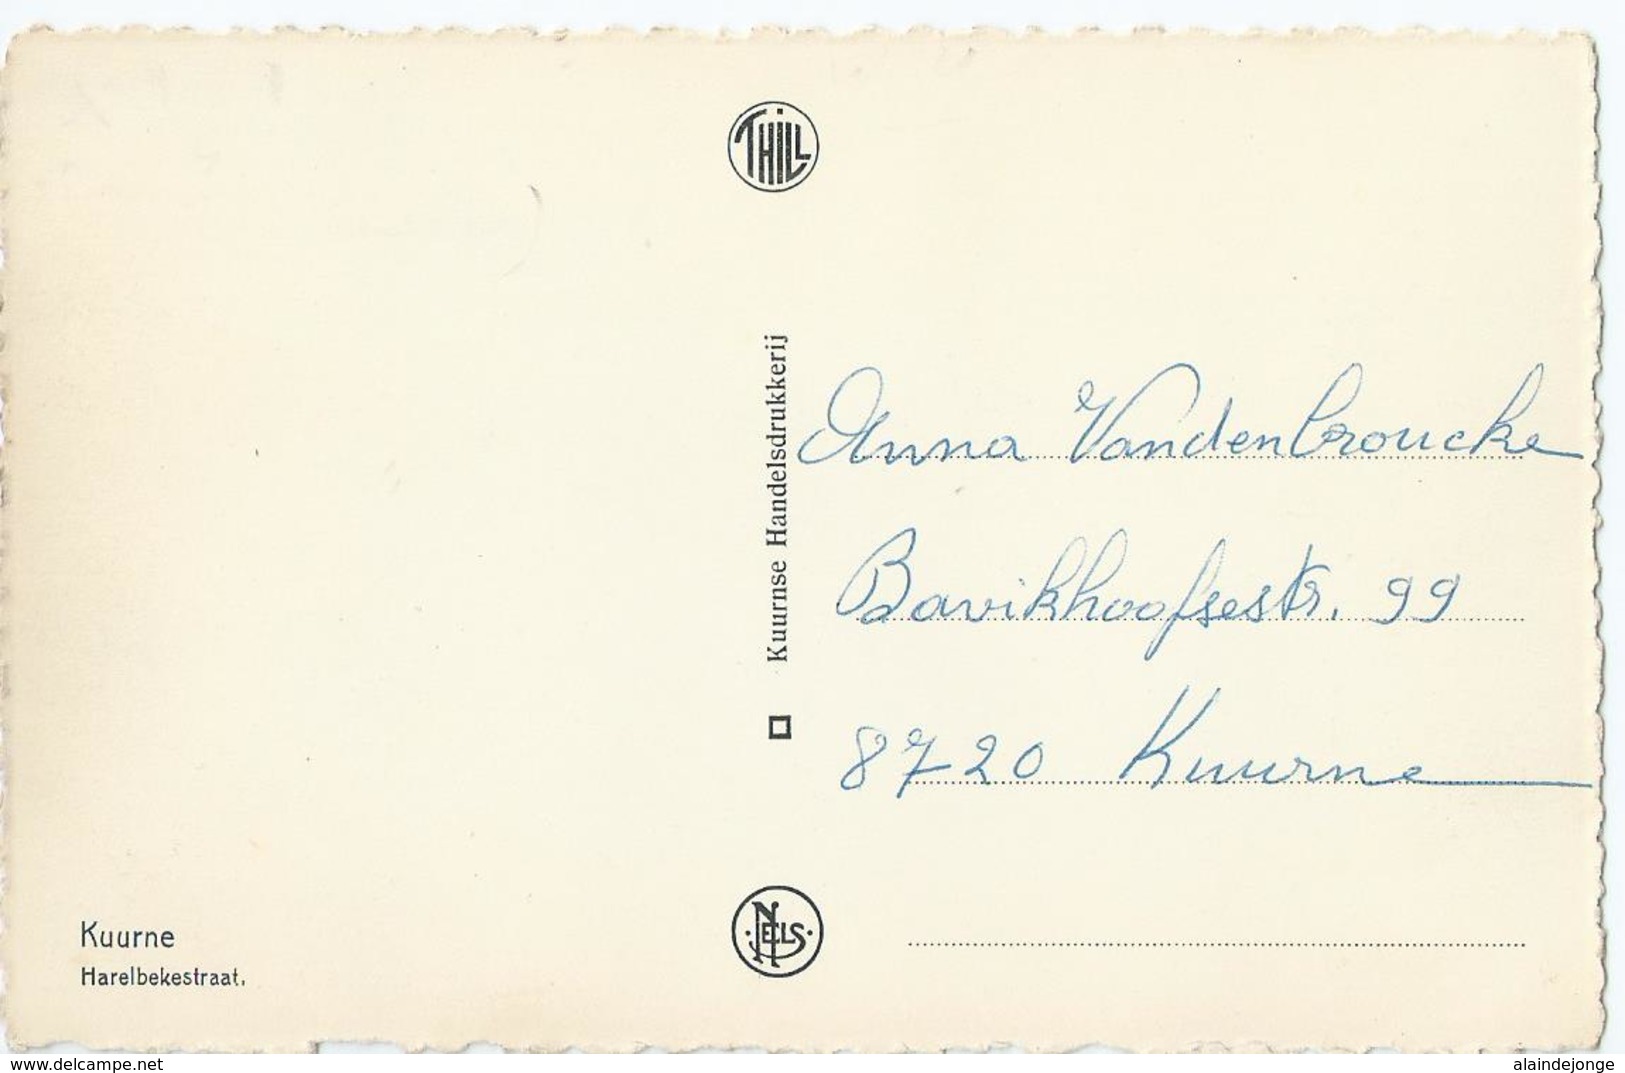 THILL
Kuurnse Handelsdrukkerij
Anna Vandenbroucke
Bavikhoofsestr. 99
8720 Kuurne
NELS
Kuurne
Harelbekestraat.
www.delcampe.net
alaindejonge